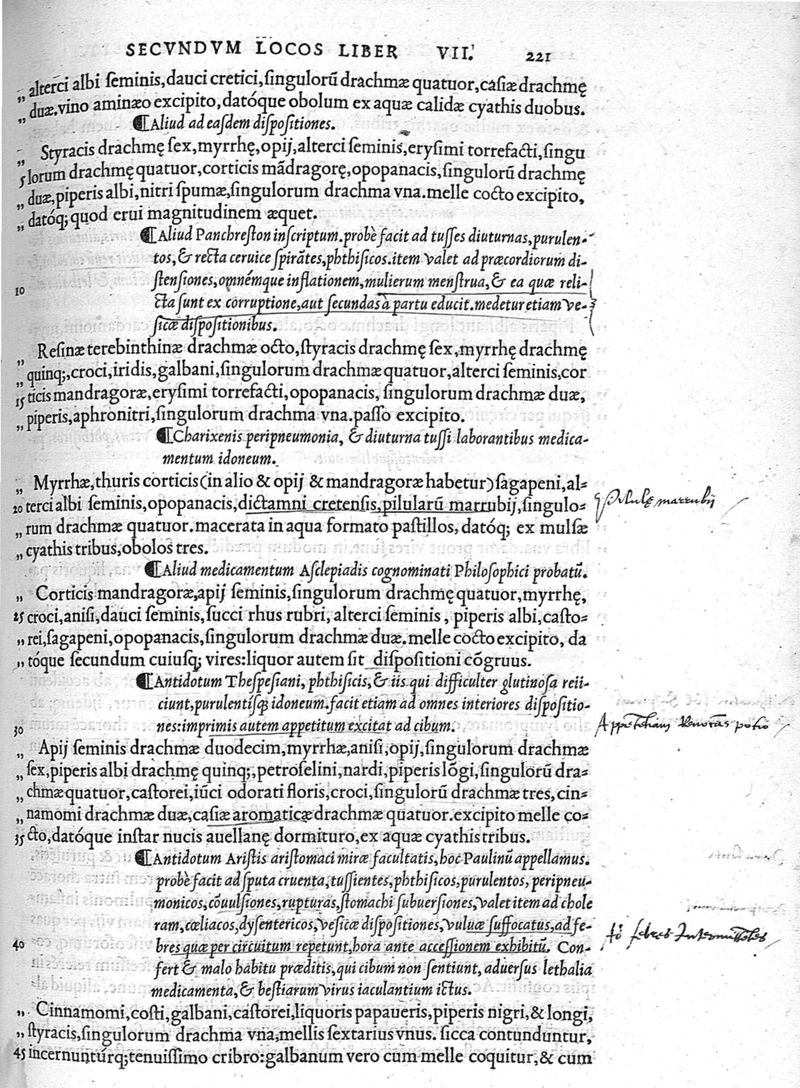 SECVNDVM LOCOS LIBER VII. 221
„ alterci albi seminis,dauci cretici,singulorū drachmæ quatuor,casiæ drachmę
„ duæ.vino aminæo excipito,datóque obolum ex aquæ calidæ cyathis duobus.
„ ¶Aliud ad easdem dispositiones.
„ Styracis drachmę sex,myrrhę,opij,alterci seminis,erysimi torrefacti,singu
5 lorum drachmę quatuor,corticis mādragorę,opopanacis,singulorū drachmę
„ duæ,piperis albi,nitri spumæ,singulorum drachma vna.melle cocto excipito,
„ datóq; quod erui magnitudinem æquet.
¶Aliud Panchreston inscriptum.probè facit ad tusses diuturnas,purulen-
tos,& recta ceruice spirātes,phthisicos.item valet ad præcordiorum di-
10 stensiones,omnémque inflationem,mulierum menstrua,& ea quæ reli-
cta sunt ex corruptione,aut secundas à partu educit.medetur etiam ve-
sicæ dispositionibus.
„ Resinæ terebinthinæ drachmæ octo,styracis drachmę sex,myrrhę drachmę
„ quinq;,croci,iridis,galbani,singulorum drachmæ quatuor,alterci seminis,cor
15 ticis mandragoræ,erysimi torrefacti,opopanacis, singulorum drachmæ duæ,
„ piperis,aphronitri,singulorum drachma vna.passo excipito.
¶Charixenis peripneumonia, & diuturna tussi laborantibus medica-
mentum idoneum.
„ Myrrhæ,thuris corticis(in alio & opij & mandragoræ habetur)sagapeni,al-
20 terci albi seminis,opopanacis,dictamni cretensis,pilularū marrubij,singulo-
pilulę marrubij
„ rum drachmæ quatuor.macerata in aqua formato pastillos, datóq; ex mulsæ
„ cyathis tribus,obolos tres.
¶Aliud medicamentum Asclepiadis cognominati Philosophici probatū.
„ Corticis mandragoræ,apij seminis,singulorum drachmę quatuor,myrrhę,
25 croci,anisi,dauci seminis,succi rhus rubri, alterci seminis, piperis albi,casto-
„ rei,sagapeni,opopanacis,singulorum drachmæ duæ.melle cocto excipito, da
„ tóque secundum cuiusq; vires:liquor autem sit dispositioni cōgruus.
¶Antidotum Thespesiani, phthisicis,& iis qui difficulter glutinosa reii-
ciunt,purulentisq; idoneum.facit etiam ad omnes interiores dispositio-
30 nes:imprimis autem appetitum excitat ad cibum.
„ Apij seminis drachmæ duodecim,myrrhæ,anisi,opij,singulorum drachmæ
„ sex,piperis albi drachmę quinq;,petroselini,nardi,piperis lōgi,singulorū dra-
„ chmæ quatuor,castorei,iūci odorati floris,croci,singulorū drachmæ tres,cin-
„ namomi drachmæ duæ,casiæ aromaticæ drachmæ quatuor.excipito melle co-
35 cto,datóque instar nucis auellanę dormituro,ex aquæ cyathis tribus.
¶Antidotum Aristis aristomaci miræ facultatis,hoc Paulinū appellamus.
probè facit ad sputa cruenta,tussientes,phthisicos,purulentos, peripneu-
monicos,cōuulsiones,rupturas,stomachi subuersiones,valet item ad chole
ram,cœliacos,dysentericos,vesicæ dispositiones,vuluæ suffocatus,ad fe-
40 bres quæ per circuitum repetunt,hora ante accessionem exhibitū. Con-
fert & malo habitu præditis,qui cibum non sentiunt, aduersus lethalia
medicamenta,& bestiarum virus iaculantium ictus.
„ Cinnamomi,costi,galbani,castorei,liquoris papaueris,piperis nigri,& longi,
„ styracis,singulorum drachma vna,mellis sextarius vnus. sicca contunduntur,
45 incernuntúrq;tenuissimo cribro:galbanum vero cum melle coquitur,& cum